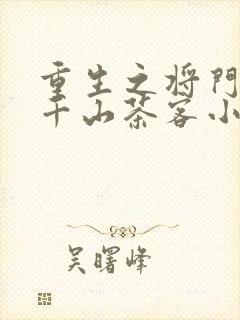 重生之将门
千山茶客小
吴曙峰